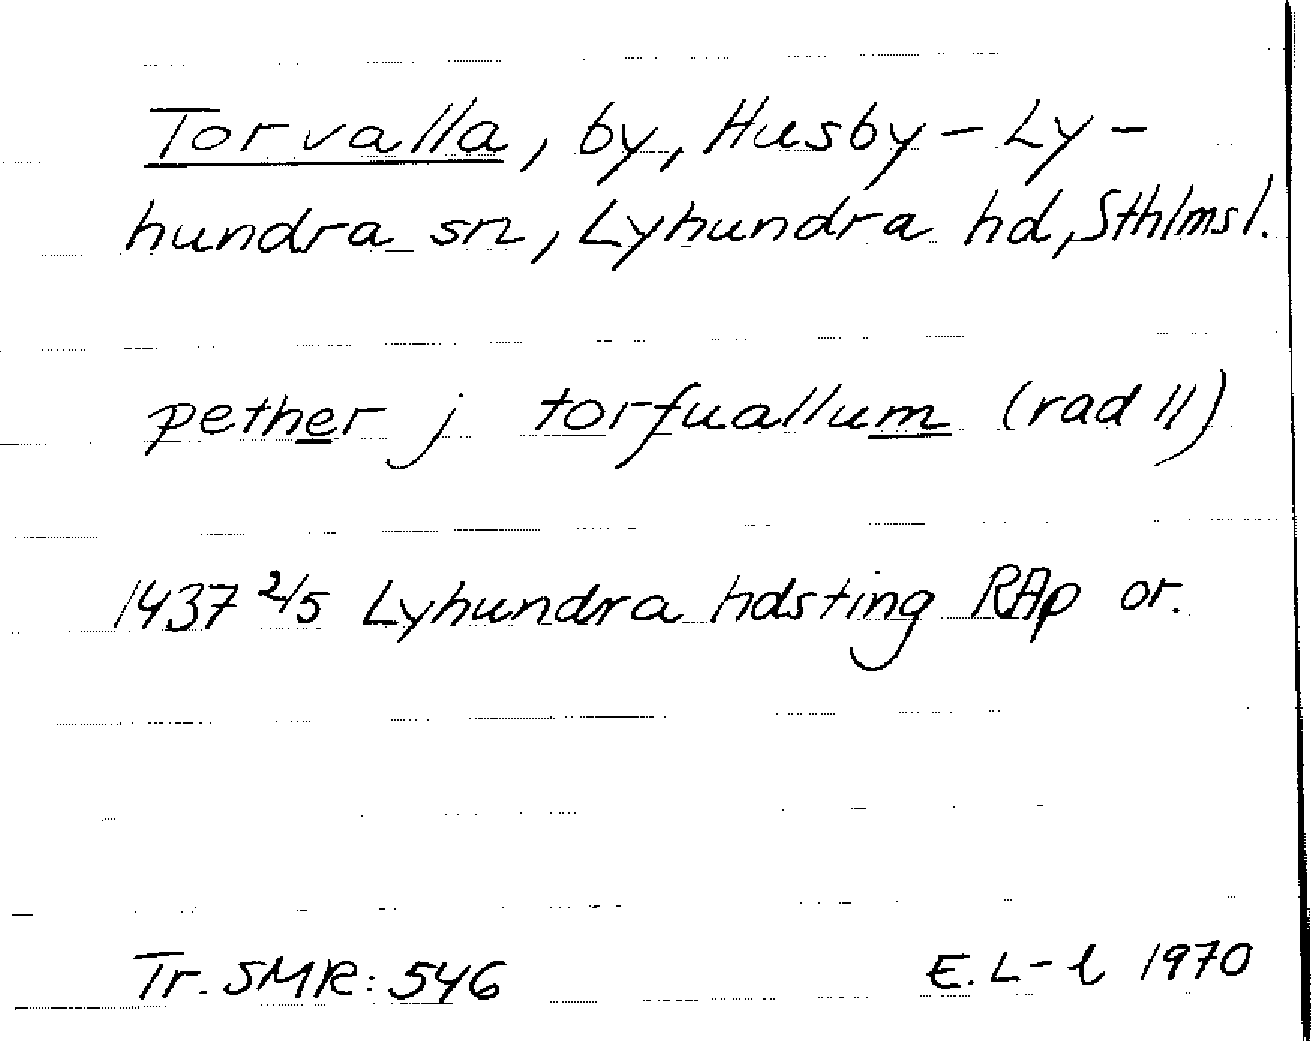 Torvalla, by, Husby-Ly-
hundra sn, Lyhundra hd, Sthlms l.
pether j torfuallum (rad 11)
1437 2/5 Lyhundra hdsting RAp or.
Tr. SMR: 546 E. L-l 1970